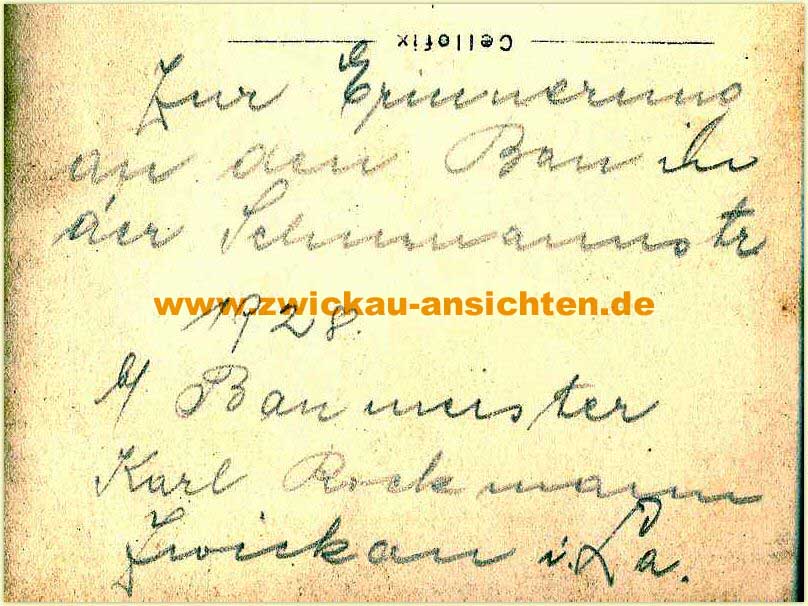 Cellofix
Zur Erinnerung
an den Bau in
der Schumannstr
www.zwickau-ansichten.de
1928.
b/ Baumeister
Karl Rockmann
Zwickau i. Sa.